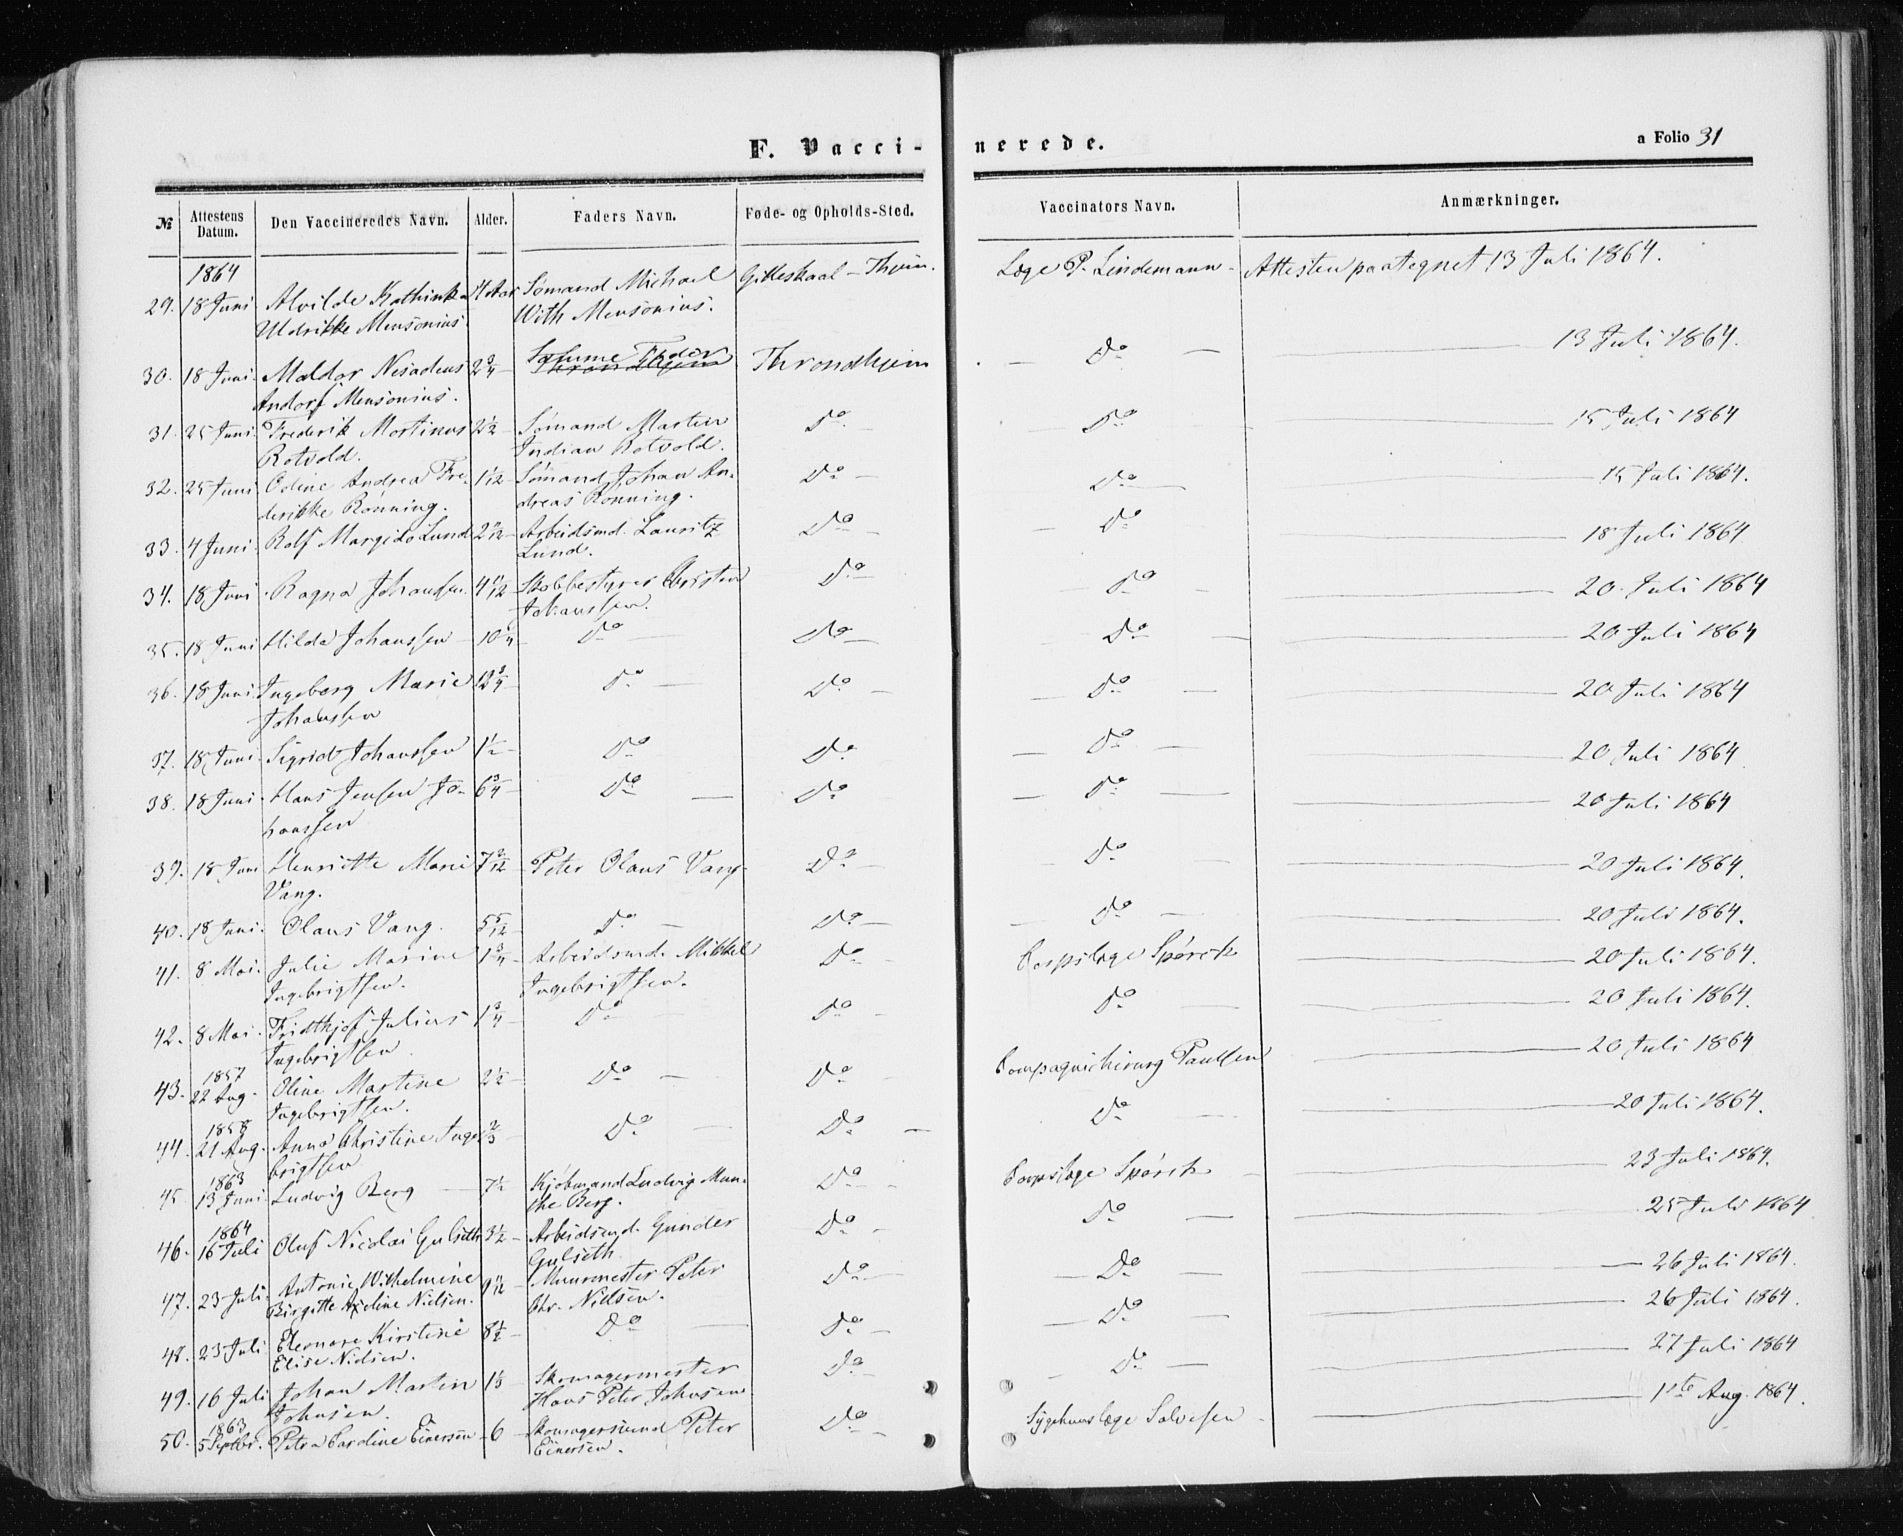 F. Vaccinerede.
a Folio 31
№ | Attestens Datum. | Den Vaccineredes Navn. | Alder. | Faders Navn. | Føde- og Opholds-Sted. | Vaccinators Navn. | Anmærkninger.
1864
29. 18 Juni Alvilde Kathinka 7 Aar Sømand Michael Gilleskaal – Thjem. Læge P. Lindemann – Attesten paategnet 13 Juli 1864.
Uldrikke Mensonius. With Mensonius.
30. 18 Juni. Maldor Nisadeus 2 3/4 – Samme Fader Throndhjem – Do – 13 Juli 1864.
Andorf Mensonius. Throndhjem
31. 25 Juni. Frederik Martinus 2 1/2 – Sømand Martin Do – Do 15 Juli 1864
Rotvold. Indian Rotvold.
32. 25 Juni Odine Andrea Fre- 1 1/12 – Sømand Johan An- Do – Do – 15 Juli 1864.
derikke Rønning. dreas Rønning.
33. 4 Juni. Rolf Margido Lund Arbeidsmd. Lauritz Do – – Do 18 Juli 1864
Lund.
34. 18 Juni Ragna Johanssen. 4 Skolebestyrer Christen Do – Do – 20 Juli 1864
Johanssen.
35. 18 Juni Hilda Johanssen – 10 Do – Do – Do – 20 Juli 1864
36. 18 Juni. Ingeborg Marie 12 3/4 – Do – Do – – Do – 20 Juli 1864
Johanssen
37. 18 Juni. Sigrid Johanssen 1 1/2 – Do Do – Do – 20 Juli 1864
38. 18 Juni. Hans Jensen Jo- 6 3/4 – Do – Do – Do – 20 Juli 1864
hanssen
39. 18 Juni Henriette Marie 7 Peter Olaus Vang. Do – Do 20 Juli 1864.
Vang.
40. 18 Juni. Olaus Vang. 5 5/12 – Do – Do – – Do – 20 Juli 1864.
41. 8 Mai. Julie Marine 1 3/4 – Arbeidsmd. Mikkel Do – Corpslæge Spørck 20 Juli 1864.
Ingebrigtsen. Ingebrigtsen.
42. 8 Mai. Fridthjof Julius 1 3/4 – Do – Do – Do – 20 Juli 1864.
Ingebrigtsen
1857
43. 22 Aug. Oline Martine 2 1/2 – Do – Do – Compagnichirurg Paulsen 20 Juli 1864
Ingebrigtsen.
44. 21 Aug. Anna Christine Inge- 2/3 – Do – Do – Do – 20 Juli 1864.
brigtsen
1863
45 13 Juni Ludvig Berg – 7 1/2 – Kjøbmand Ludvig Mun- Do – Corpslæge Spørck – 23 Juli 1864.
the Berg.
1864
46. 16 Juli Oluf Nicolai Gulseth 3 1/2 – Arbeidsmd. Gunder Do – Do – 25 Juli 1864
Gulseth
47. 23 Juli. Antonie Wilhelmine Muurmester Peter Do – – Do – 26 Juli 1864.
Birgitte Axeline Nielsen. Chr. Nielsen.
48. 23 Juli Eleonore Kirstine 8 1/2 – Do – Do – – Do – 26 Juli 1864.
Elise Nielsen.
49. 16 Juli Johan Martin 1 1/3 – Skomagermester Do – – Do – 27 Juli 1864
Johnsen. Hans Peter Johnsen
1863
50. 5 Septbr. Petra Caroline Einersen – 6 – Skomagersvend Peter Do – Sygehuuslæge Salvesen – 1ste Aug. 1864.
Einersen.